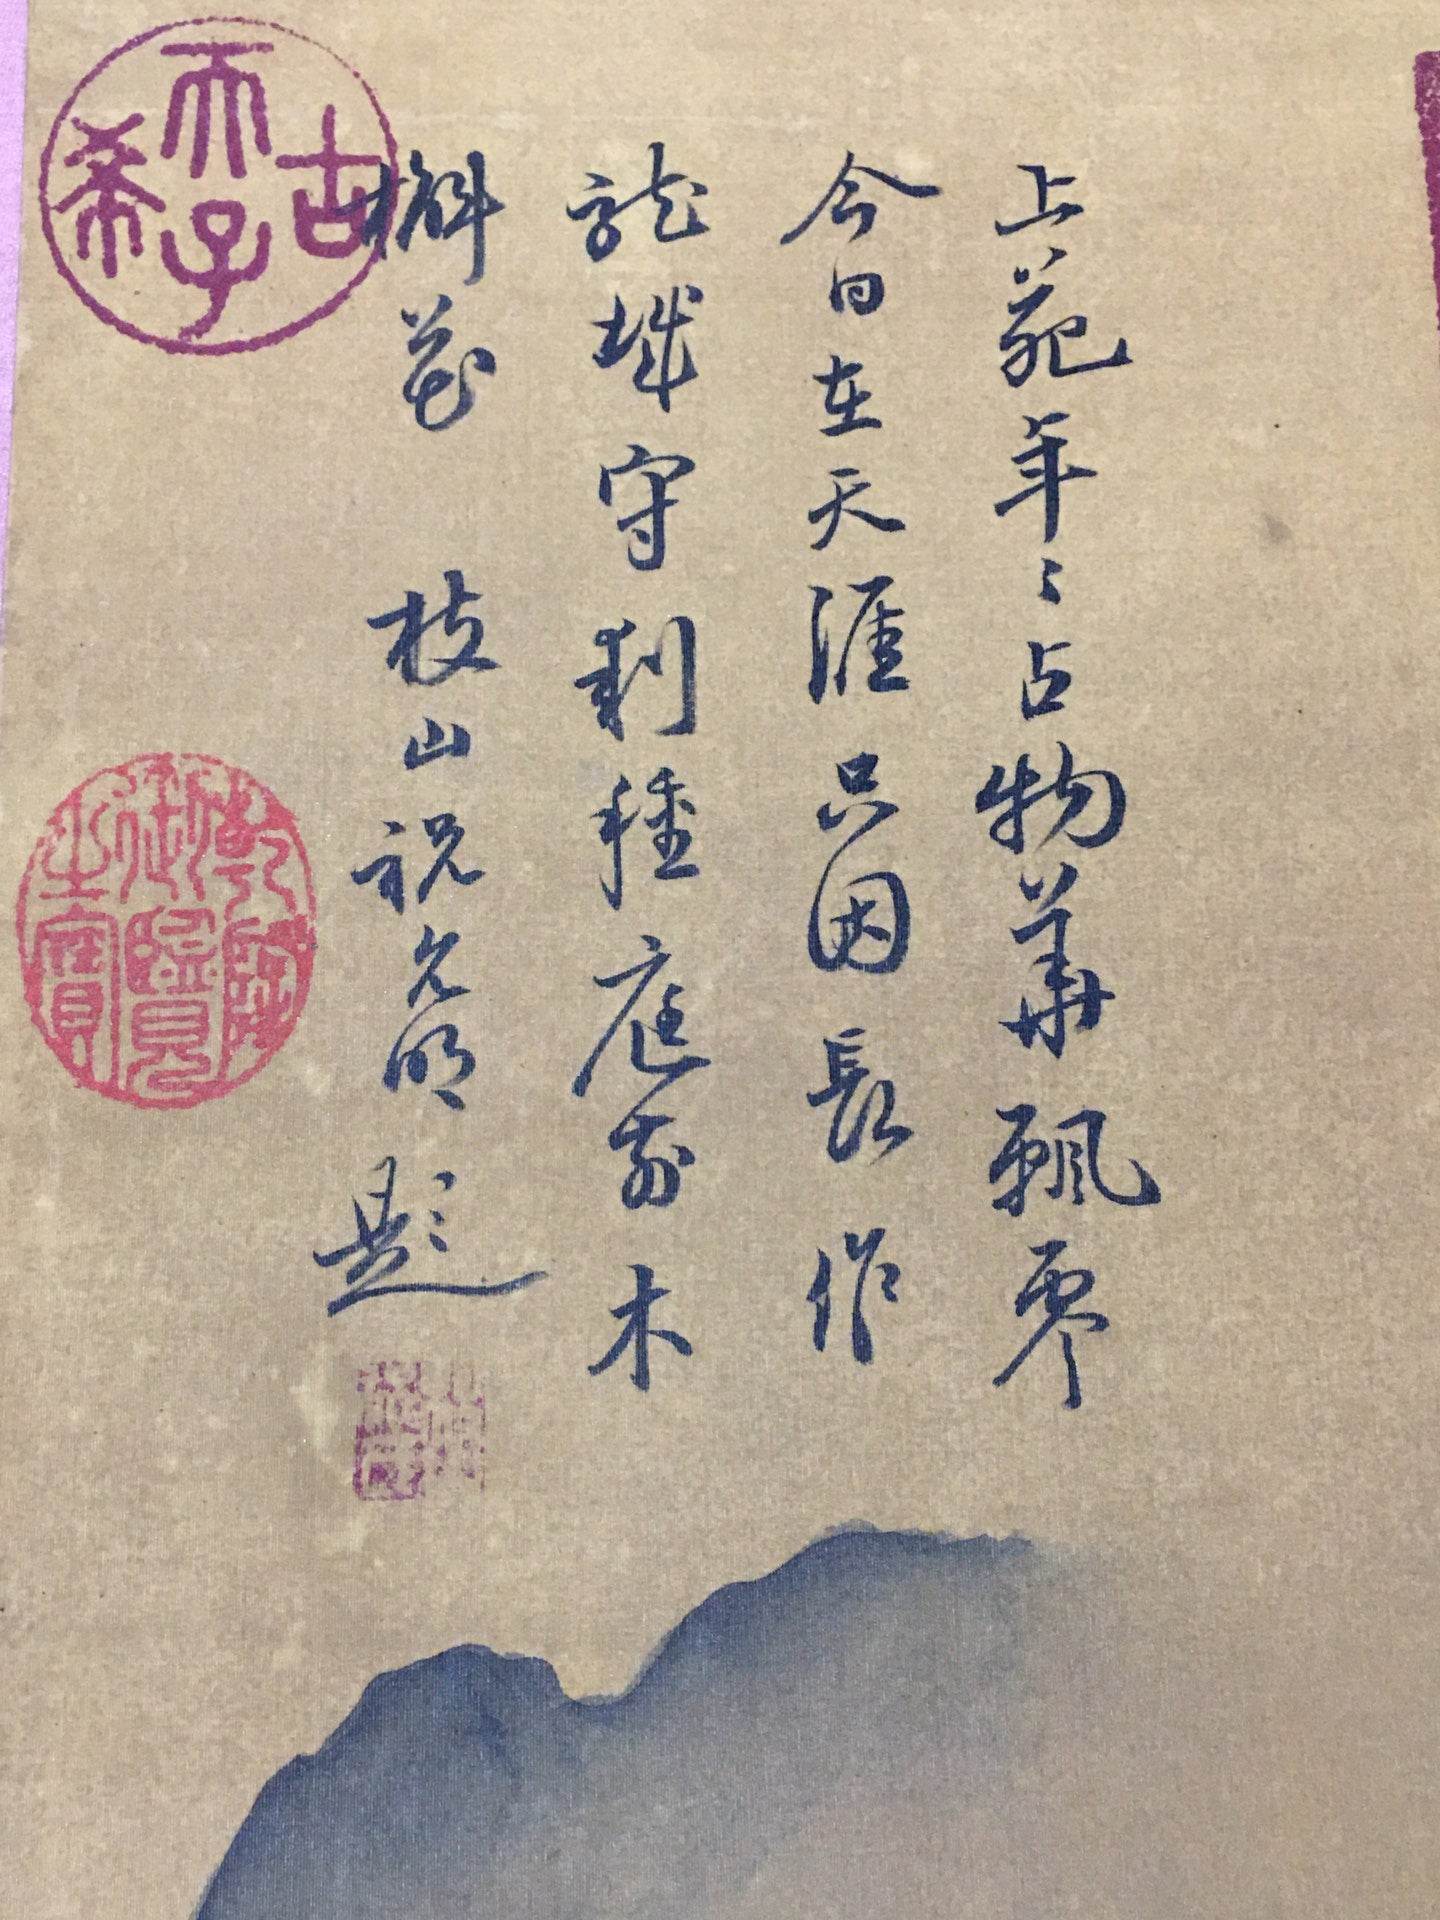 上苑年〻占物華飄零
今日在天涯只因長作
龍城守剩種庭前木
槲花　枝山祝允明題
古希天子
乾隆御覽之寶